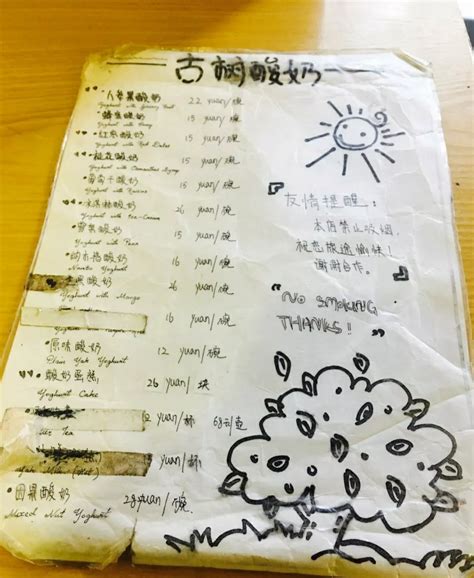 古树酸奶
人参果酸奶 22 yuan/碗
Yoghurt with Ginseng Fruit
蜂蜜酸奶 15 yuan/碗
Yoghurt with Honey
红枣酸奶 15 yuan/碗
Yoghurt with Red Dates
桂花酸奶 15 yuan/碗
Yoghurt with
葡萄干酸奶 15 yuan/碗
Yoghurt with Raisins
冰淇淋酸奶 26 yuan/碗
Yoghurt with Ice-Cream
雪梨酸奶 15 yuan/碗
Yoghurt with Pear
酸奶 16 yuan/碗
Yoghurt
果酸奶 26 yuan/碗
Yoghurt with Mango
16 yuan/碗
原味酸奶 12 yuan/碗
Plain Yak Yoghurt
酸奶蛋糕 26 yuan/块
Yoghurt Cake
12 yuan/杯 68元/壶
Tea
yuan/杯
坚果酸奶 28yuan/碗
Mixed Nut Yoghurt
友情提醒:
本店禁止吸烟,
祝您旅途愉快!
谢谢合作。
"NO SMOKING
THANKS! "